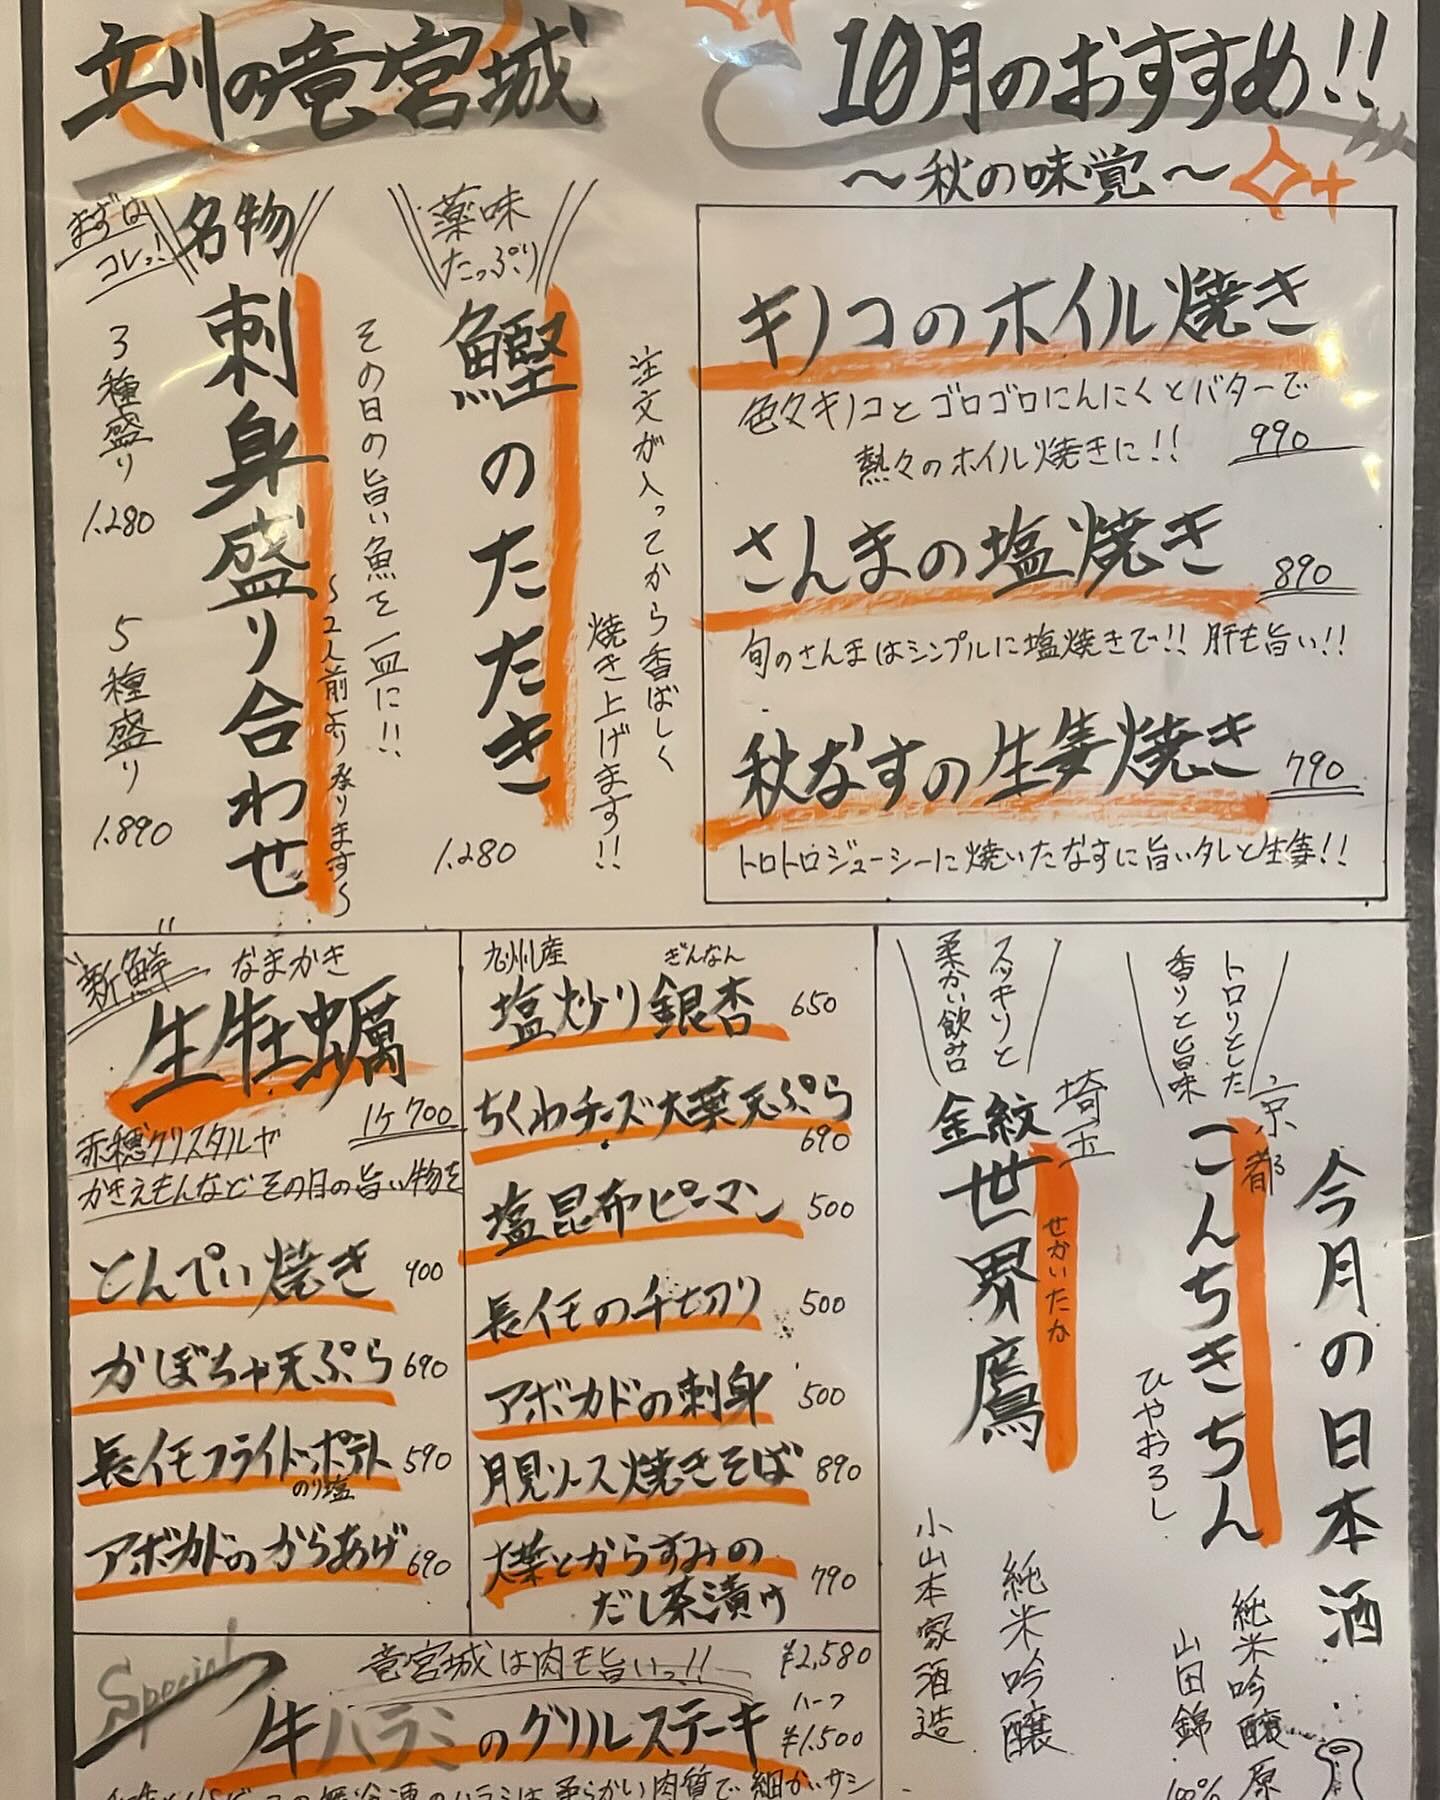 立川の竜宮城
10月のおすすめ!!
～秋の味覚～
まずは
コレっ!
名物
刺身盛り合わせ
3種盛り
1.280
5種盛り
1.890
その日の旨い魚を一皿に!!
～2人前より承ります～
薬味
たっぷり
鰹のたたき
1.280
注文が入ってから香ばしく
焼き上げます!!
キノコのホイル焼き
色々キノコとゴロゴロにんにくとバターで
熱々のホイル焼きに!!
990
さんまの塩焼き
890
旬のさんまはシンプルに塩焼きで!! 肝も旨い!!
秋なすの生姜焼き
790
トロトロジューシーに焼いたなすに旨いタレと生姜!!
新鮮
なまかき
生牡蠣
1ケ 700
赤穂クリスタルや
かきえもんなどその日の旨い物を
とんぺい焼き 400
かぼちゃ天ぷら 690
長イモフライドポテト 590
のり塩
アボカドのからあげ 690
九州産
ぎんなん
塩炒り銀杏 650
ちくわチーズ大葉天ぷら
690
塩昆布ピーマン 500
長イモの千切り 500
アボカドの刺身 500
月見ソース焼きそば 890
大葉とからすみの
だし茶漬け 790
今月の日本酒
トロリとした
香りと旨味
京都
こんちきちん
ひやおろし
純米吟醸原
山田錦100%
スッキリと
柔かい飲み口
埼玉
金紋
世界鷹
せかいたか
純米吟醸
小山本家酒造
Special
竜宮城は肉も旨いっ!!
牛ハラミのグリルステーキ
¥2,580
ハーフ
¥1.500
ハラミは柔らかい肉質で細かいサシ